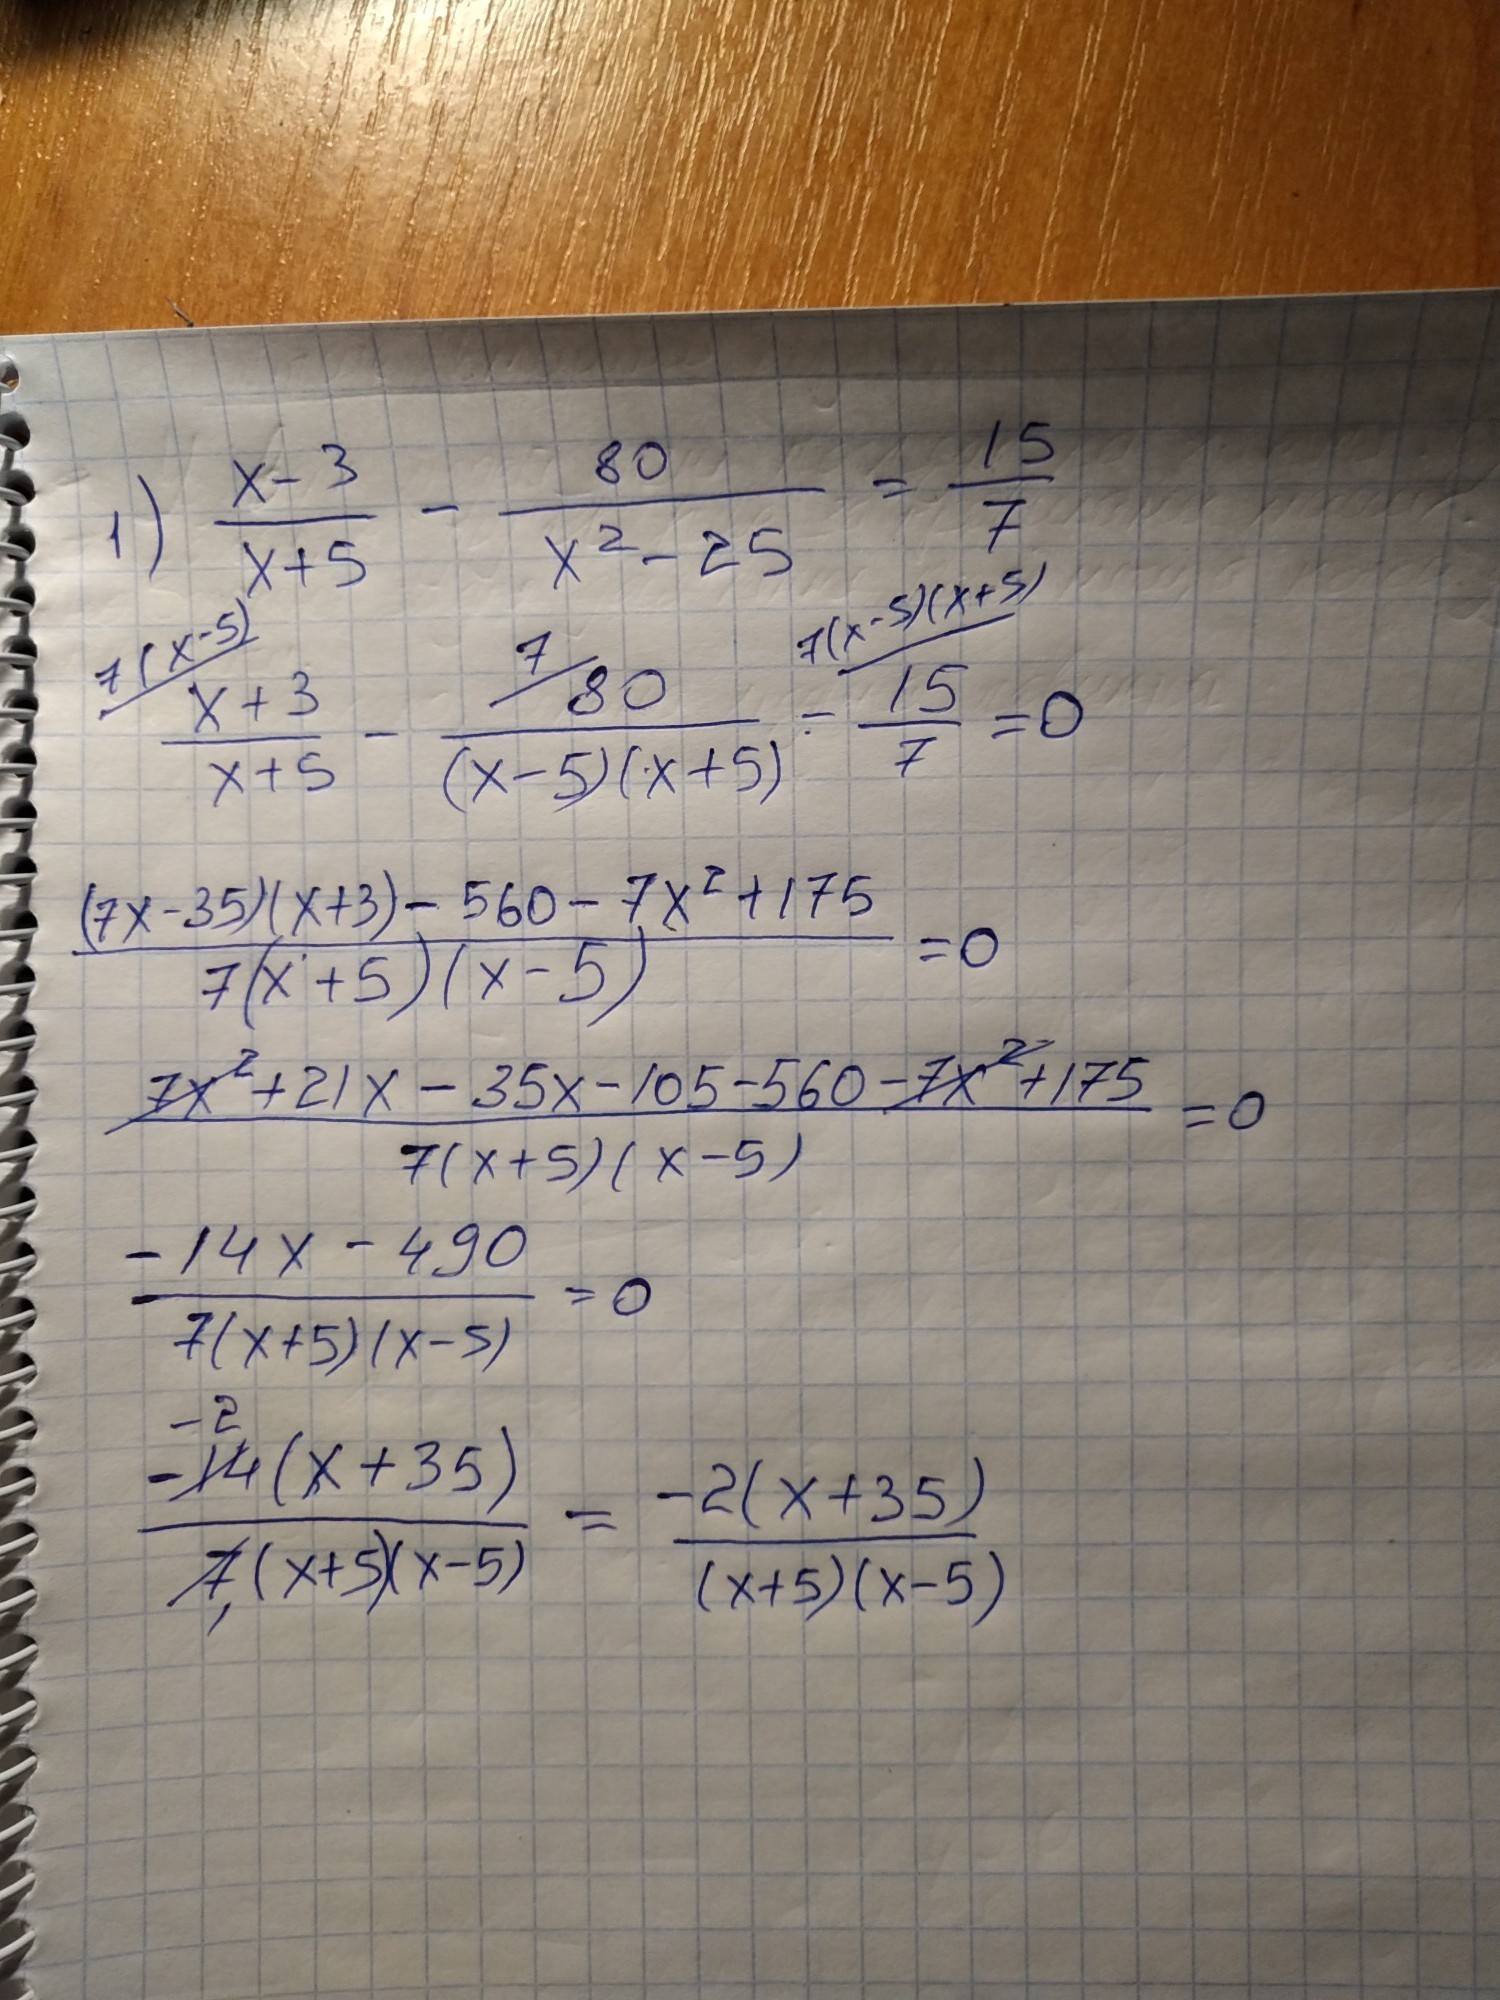 1) (x-3)/(x+5) - 80/(x²-25) = 15/7
7(x-5)/ (x+3)/(x+5) - 7/ 80/((x-5)(x+5)) - 7(x-5)(x+5)/ 15/7 = 0
((7x-35)(x+3) - 560 - 7x² + 175)/(7(x+5)(x-5)) = 0
(7x² + 21x - 35x - 105 - 560 - 7x² + 175)/(7(x+5)(x-5)) = 0
(-14x - 490)/(7(x+5)(x-5)) = 0
-2
(-14(x+35))/(7(x+5)(x-5)) = (-2(x+35))/((x+5)(x-5))